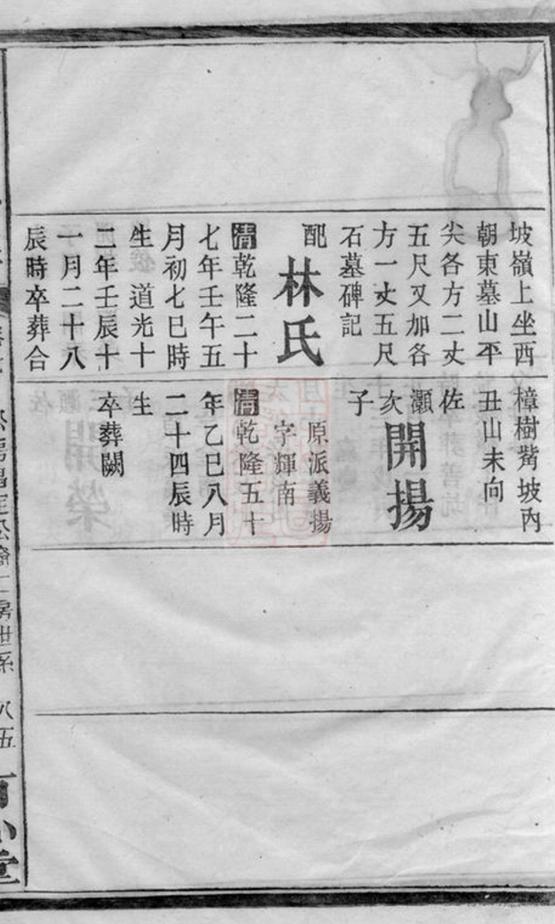 坡嶺上坐西
朝東墓山平
尖各方二丈
五尺又加各
方一丈五尺
石墓碑記
配林氏
清乾隆二十
七年壬午五
月初七巳時
生 道光十
二年壬辰十
一月二十八
辰時卒葬合
樟樹觜坡內
丑山未向
灝佐次子 開揚
原派義揚
字輝南
清乾隆五十
年乙巳八月
二十四辰時
生
卒葬闕
房世系 八五